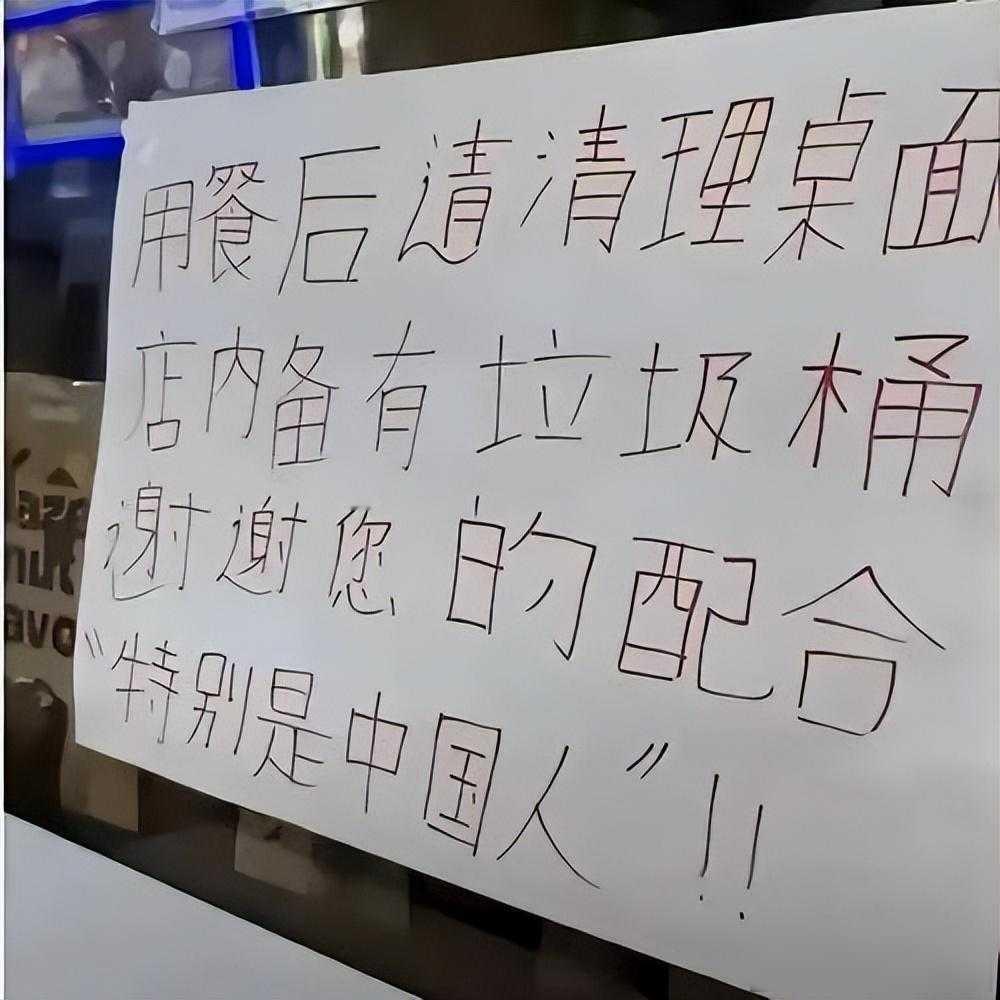 用餐后请清理桌面
店内备有垃圾桶
谢谢您的配合
"特别是中国人"!!